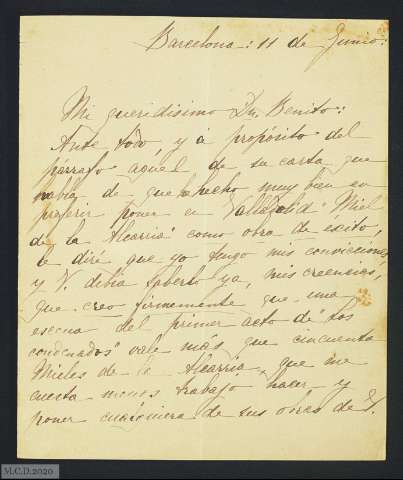 Barcelona: 11 de Junio:
Mi queridisimo Dn. Benito:
Ante todo, y á propósito del
párrafo aquel de su carta que
habla de que he hecho muy bien en
preferir poner en Valladolid "Miel
de la Alcarria" como obra de éxito,
le diré que yo tengo mis convicciones
y V. debia saberlo ya, mis creencias,
que creo firmemente que una
escena del primer acto de "Los
condenados" vale más que cincuenta
Mieles de la Alcarria, que me
cuesta menos trabajo hacer y
poner cualquiera de sus obras de V.
M.C.D. 2020